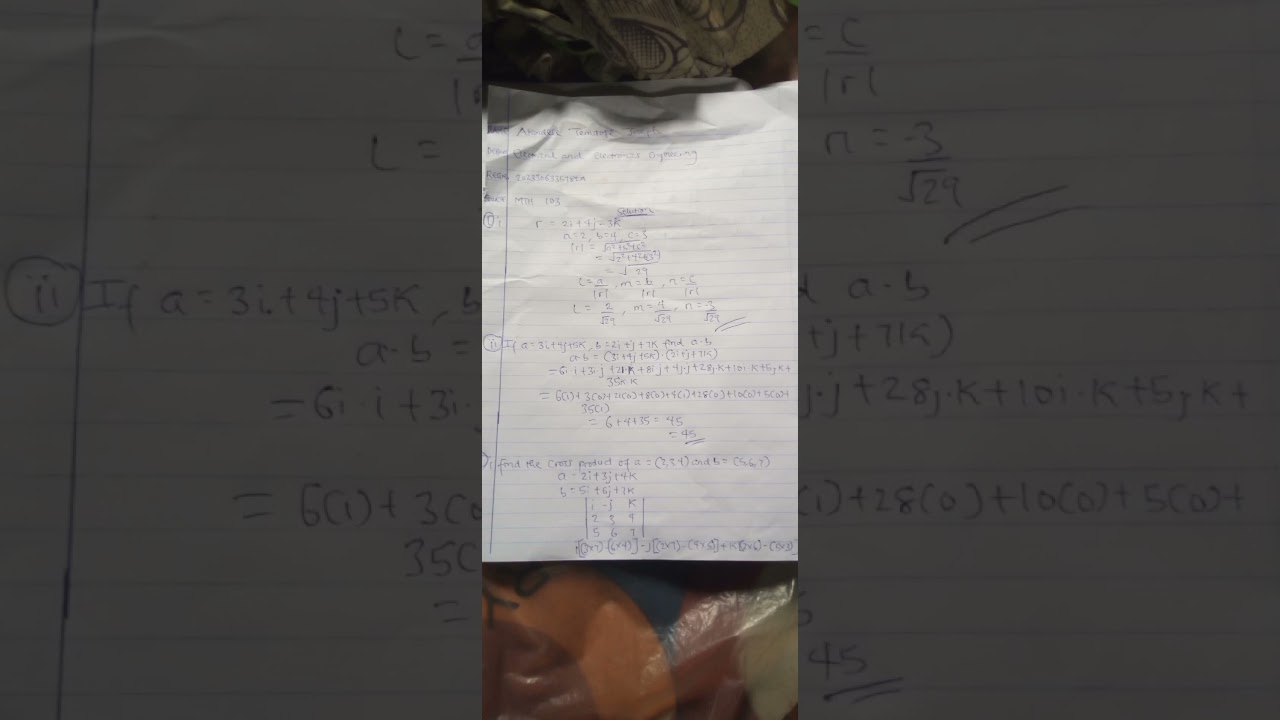 Electrical and Electronics Engineering
MTH 103
Solution
(1) i r = 2i+4j-3k
a=2, b=4, c=3
|r| = √a²+b²+c²
= √2²+4²+3²
= √29
l=a/|r|, m=b/|r|, n=c/|r|
l = 2/√29, m=4/√29, n=-3/√29
(ii) If a=3i+4j+5k, b=2i+j+7k find a·b
a·b = (3i+4j+5k)·(2i+j+7k)
=6i·i+3i·j+21·k+8i·j+4j·j+28j·k+10i·k+5j·k+
35k·k
= 6(1)+3(0)+21(0)+8(0)+4(1)+28(0)+10(0)+5(0)+
35(1)
= 6+4+35 = 45
=45
i find the cross product of a = (2,3,4) and b = (5,6,7)
a = 2i+3j+4k
b = 5i+6j+7k
| i -j k |
| 2 3 4 |
| 5 6 7 |
i[(3×7)-(6×4)] -j[(2×7)-(4×5)]+k[(2×6)-(5×3)]